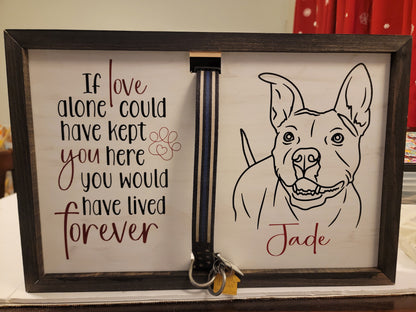 If love
alone could
have kept
you here
you would
have lived
forever
Jade